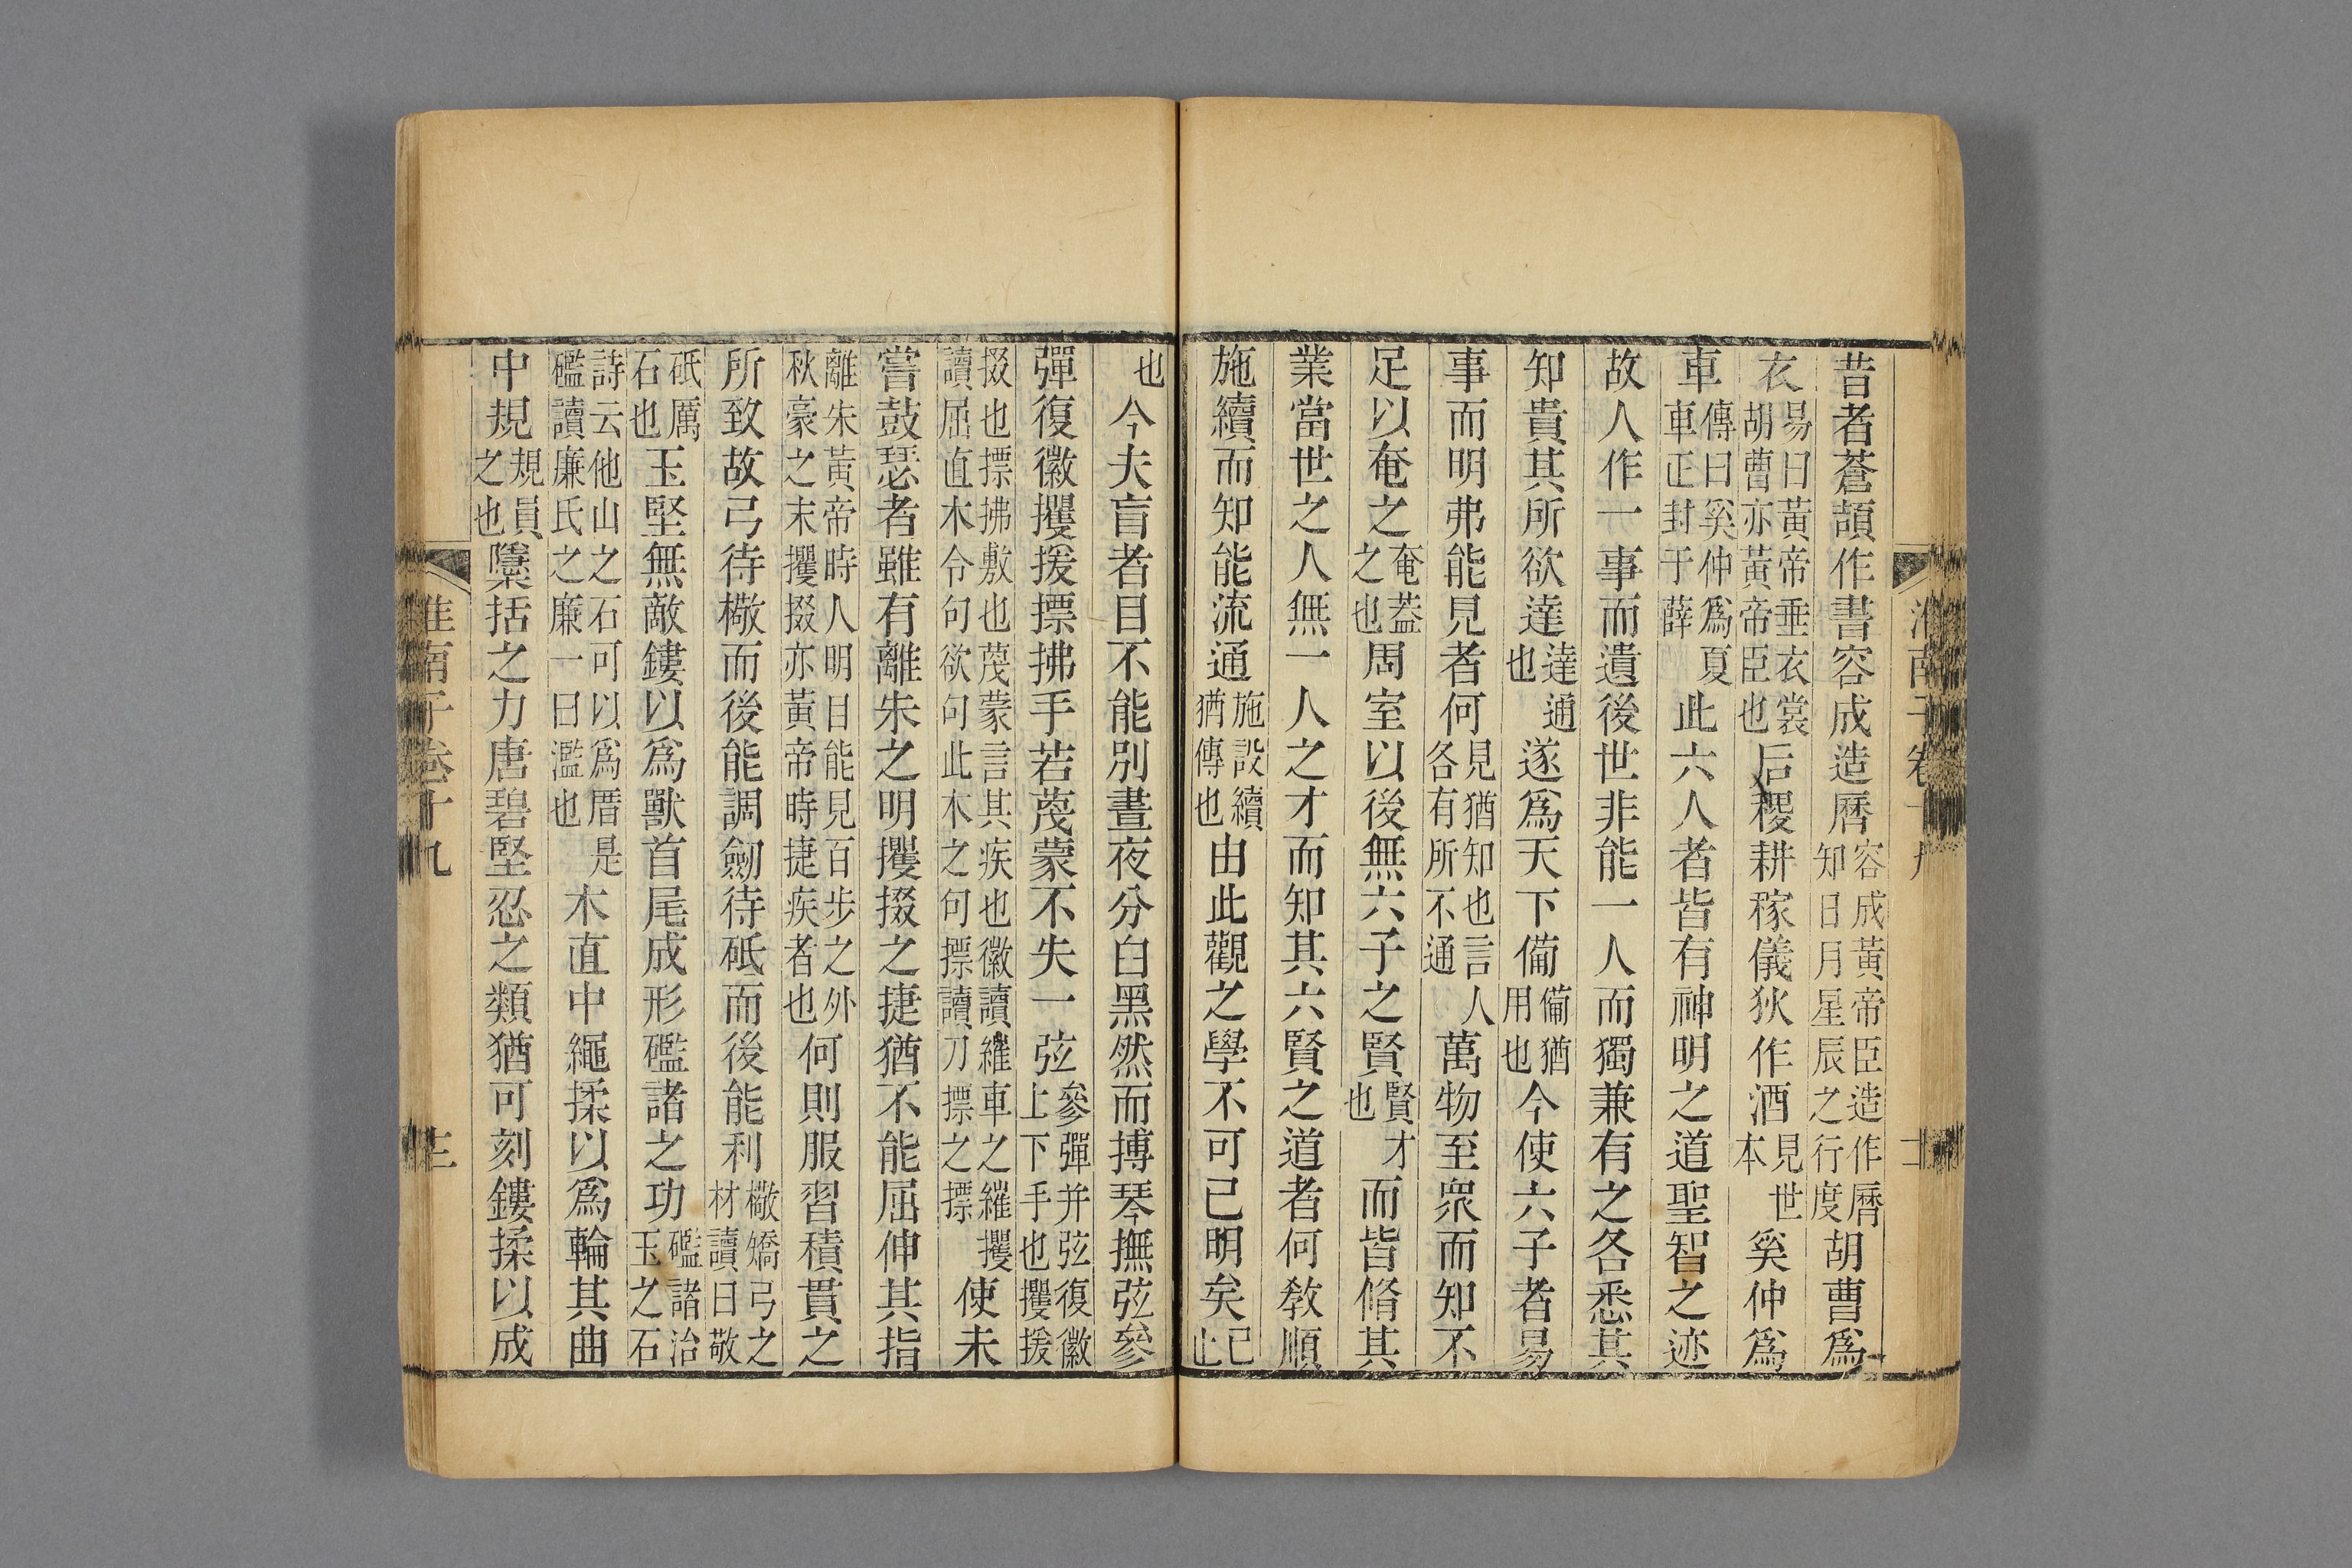 昔者蒼頡作書容成造曆容成黃帝臣造作曆知日月星辰之行度胡曹爲
衣易曰黃帝垂衣裳胡曹亦黃帝臣也后稷耕稼儀狄作酒見世本奚仲爲
車傳曰奚仲爲夏車正封于薛此六人者皆有神明之道聖智之迹
故人作一事而遺後世非能一人而獨兼有之各悉其
知貴其所欲達達通也遂爲天下備備猶用也今使六子者易
事而明弗能見者何見猶知也言人各有所不通萬物至衆而知不
足以奄之奄蓋之也周室以後無六子之賢賢才也而皆脩其
業當世之人無一人之才而知其六賢之道者何教順
施續而知能流通施設續猶傳也由此觀之學不可已明矣已止
也今夫盲者目不能別晝夜分白黑然而搏琴撫弦參
彈復徽攫援摽拂手若蔑蒙不失一弦參彈并弦復徽上下手也攫援
掇也摽拂敷也蔑蒙言其疾也徽讀維車之繀攫讀屈直木令句欲句此木之句摽讀刀摽之摽使未
嘗鼓瑟者雖有離朱之明攫掇之捷猶不能屈伸其指
離朱黃帝時人明目能見百步之外秋豪之末攫掇亦黃帝時捷疾者也何則服習積貫之
所致故弓待檠而後能調劒待砥而後能利檠矯弓之材讀曰敬
砥厲石也玉堅無敵鏤以爲獸首尾成形礛諸之功礛諸治玉之石
詩云他山之石可以爲厝是礛讀廉氏之廉一曰濫也木直中繩揉以爲輪其曲
中規規員之也檃括之力唐碧堅忍之類猶可刻鏤揉以成
淮南子卷十九